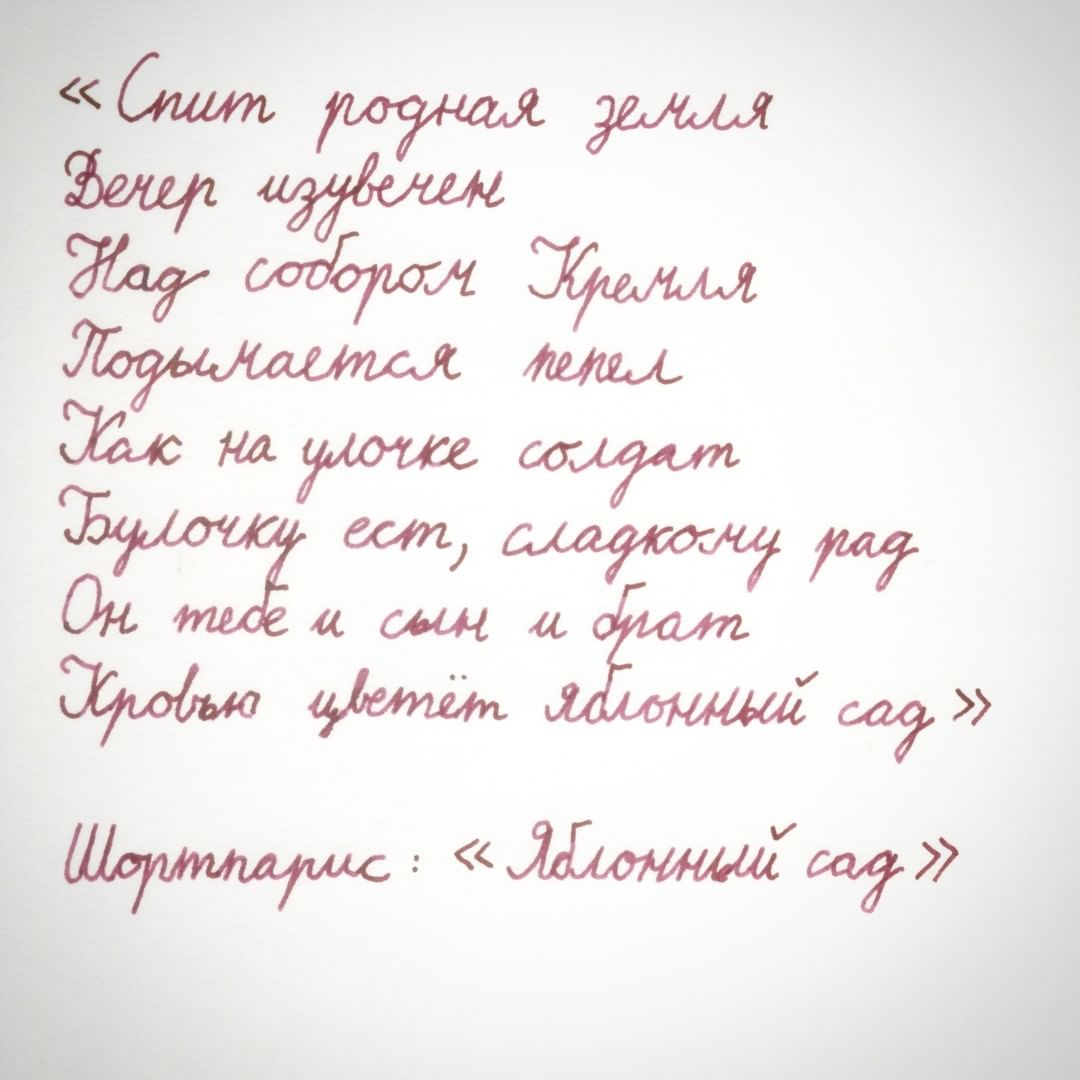 «Спит родная земля
Вечер изувечен
Над собором Кремля
Подымается пепел
Как на улочке солдат
Булочку ест, сладкому рад
Он тебе и сын и брат
Кровью цветёт яблонный сад»
Шортпарис: «Яблонный сад»